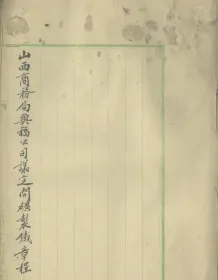 山西商務局與福公司議定開礦製鐵章程